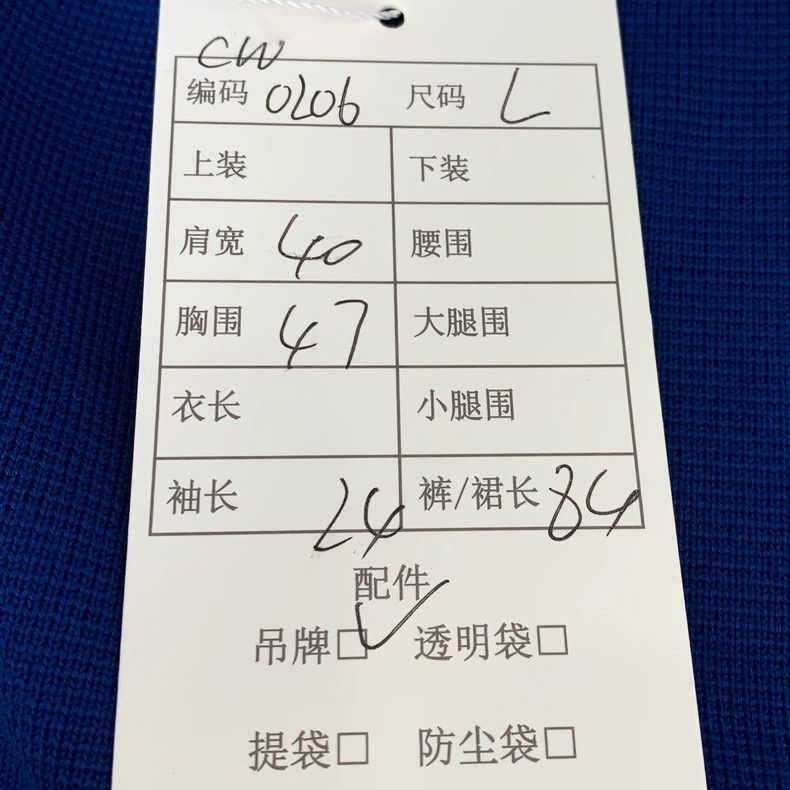 CW
编码 0206 尺码 L
上装 下装
肩宽 40 腰围
胸围 47 大腿围
衣长 小腿围
袖长 24 裤/裙长 84
配件
吊牌□✓ 透明袋□
提袋□ 防尘袋□